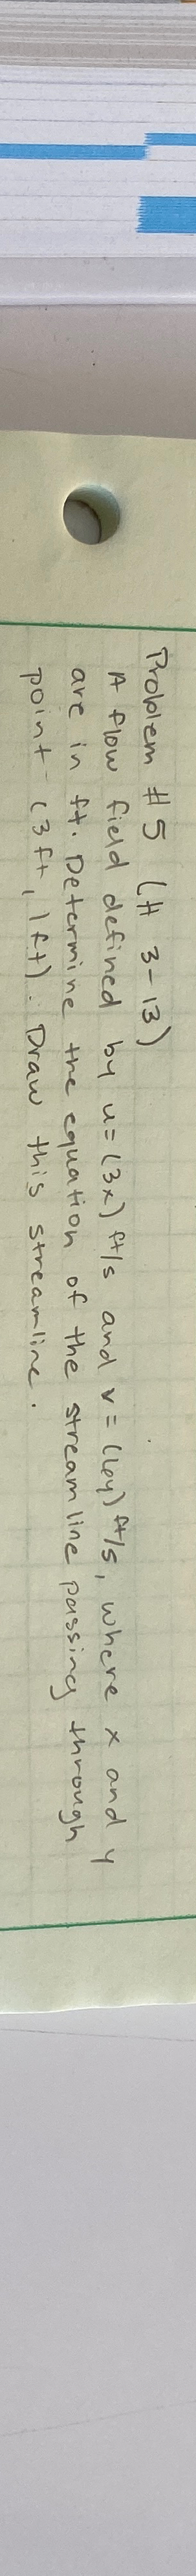 Problem #5 (# 3-13)
A flow field defined by u=(3x) ft/s and v=(6y) ft/s, where x and y
are in ft. Determine the equation of the streamline passing through
point (3 ft, 1 ft). Draw this streamline.